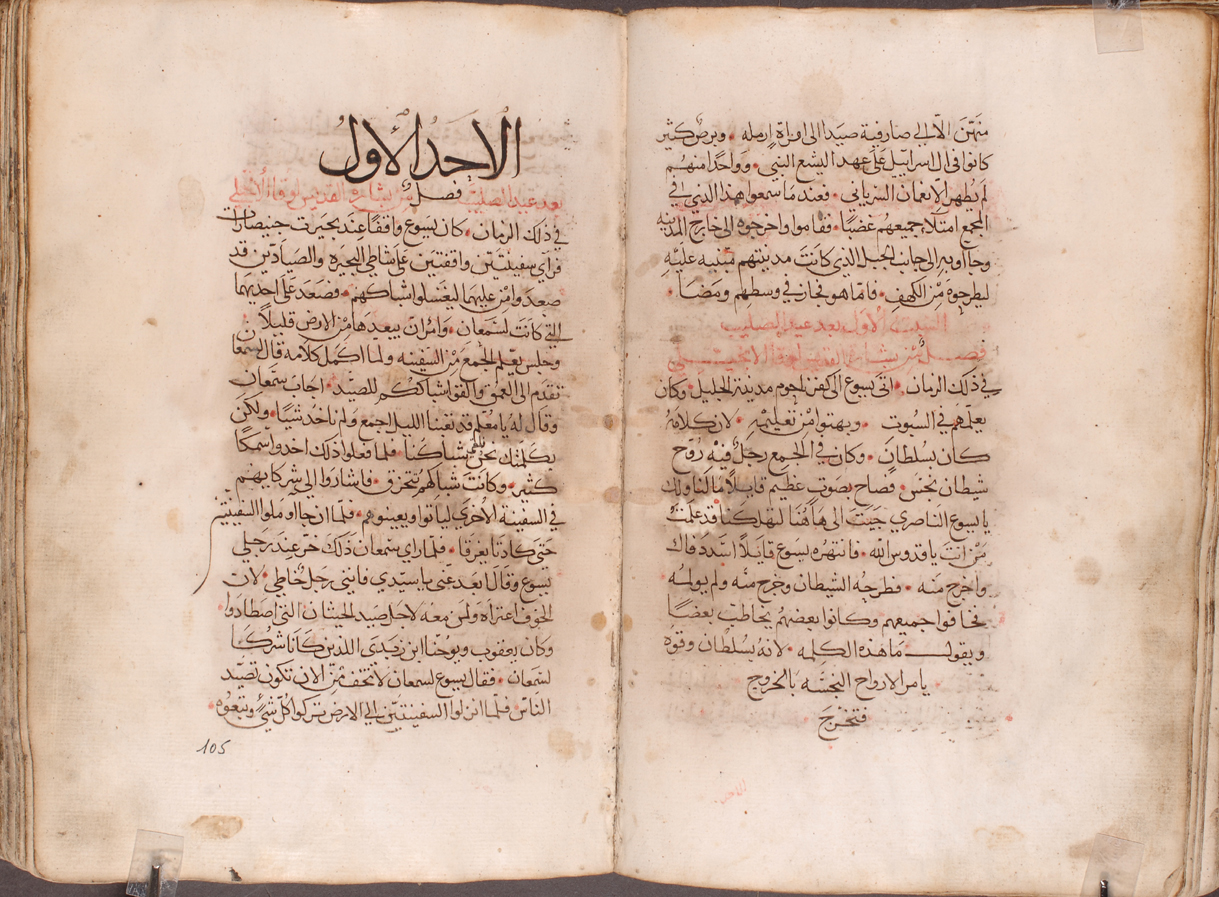 منهن الا الي صارفية صيدا الى امراة ارمله • وبرص كثير
كانوا في ال اسراييل على عهد اليشع النبي • وواحدا منهم
لم يطهر الا نعمان السرياني • فعند ما سمعوا هذا الذين في
المجمع امتلا جميعهم غضبا • فقاموا واخرجوه الى خارج المدينه
وجااو به الى جانب الجبل الذي كانت مدينتهم مبنيه عليه
ليطرحوه من الكهف • فاما هو فجاز في وسطهم ومضا •
السبت الاول بعد عيد الصليب
فصل من بشارة القديس لوقا الانجيلي
في ذلك الزمان • اتى يسوع الى كفرناحوم مدينة الجليل • وكان
يعلمهم في السبوت • وبهتوا من تعليمه • لان كلامه
كان بسلطان • وكان في المجمع رجل فيه روح
شيطان نجس • فصاح بصوت عظيم قايلا ما لنا ولك
يا يسوع الناصري جيت الى هاهنا لتهلكنا قد علمت
من انت يا قدوس الله • فانتهره يسوع قايلا اسدد فاك
واخرج منه • فطرحه الشيطان وخرج منه ولم يولمه •
فخافوا جميعهم وكانوا بعضهم يخاطب بعضا
ويقول ما هذه الكلمه • لانه بسلطان وقوه
يامر الارواح النجسه بالخروج
فتخرج
الاحد الاول
بعد عيد الصليب فصل من بشارة القديس لوقا الانجيلي
في ذلك الزمان • كان يسوع واقفا عند بحيرت جنيصارات
فراي سفينتين واقفتين على شاطي البحيره والصيادين قد
صعدوا من عليهما ليغسلوا شباكهم • فصعد على احديهما
التي كانت لسمعان • وامر ان يبعدها من الارض قليلا
وجلس يعلم الجمع من السفينه ولما اكمل كلامه قال لسمعان
تقدم الى العمق والقوا شباككم للصيد • اجاب سمعان
وقال له يا معلم قد تعبنا الليل اجمع ولم ناخد شيا • ولكن
بكلمتك نحن نلقي شباكنا • فلما فعلوا ذلك اخدوا سمكا
كثير • وكانت شباكهم تتخرق • فاشاروا الي شركايهم
في السفينة الاخري لياتوا ويعينوهم • فلما ان جااو ملوا السفينتين
حتى كادتا يغرقا • فلما راي سمعان ذلك خر عند رجلي
يسوع وقال ابعد عني يا سيدي فانني رجل خاطي • لان
الخوف اعتراه ولمن معه لاجل صيد الحيتان التي اصطادوا •
وكان يعقوب ويوحنا ابن زبدى اللذين كانا شركا
لسمعان • فقال يسوع لسمعان لا تخف من الان تكون تصيد
الناس • فلما انزلوا السفينتين الي الارض تركوا كل شي وتبعوه •
105